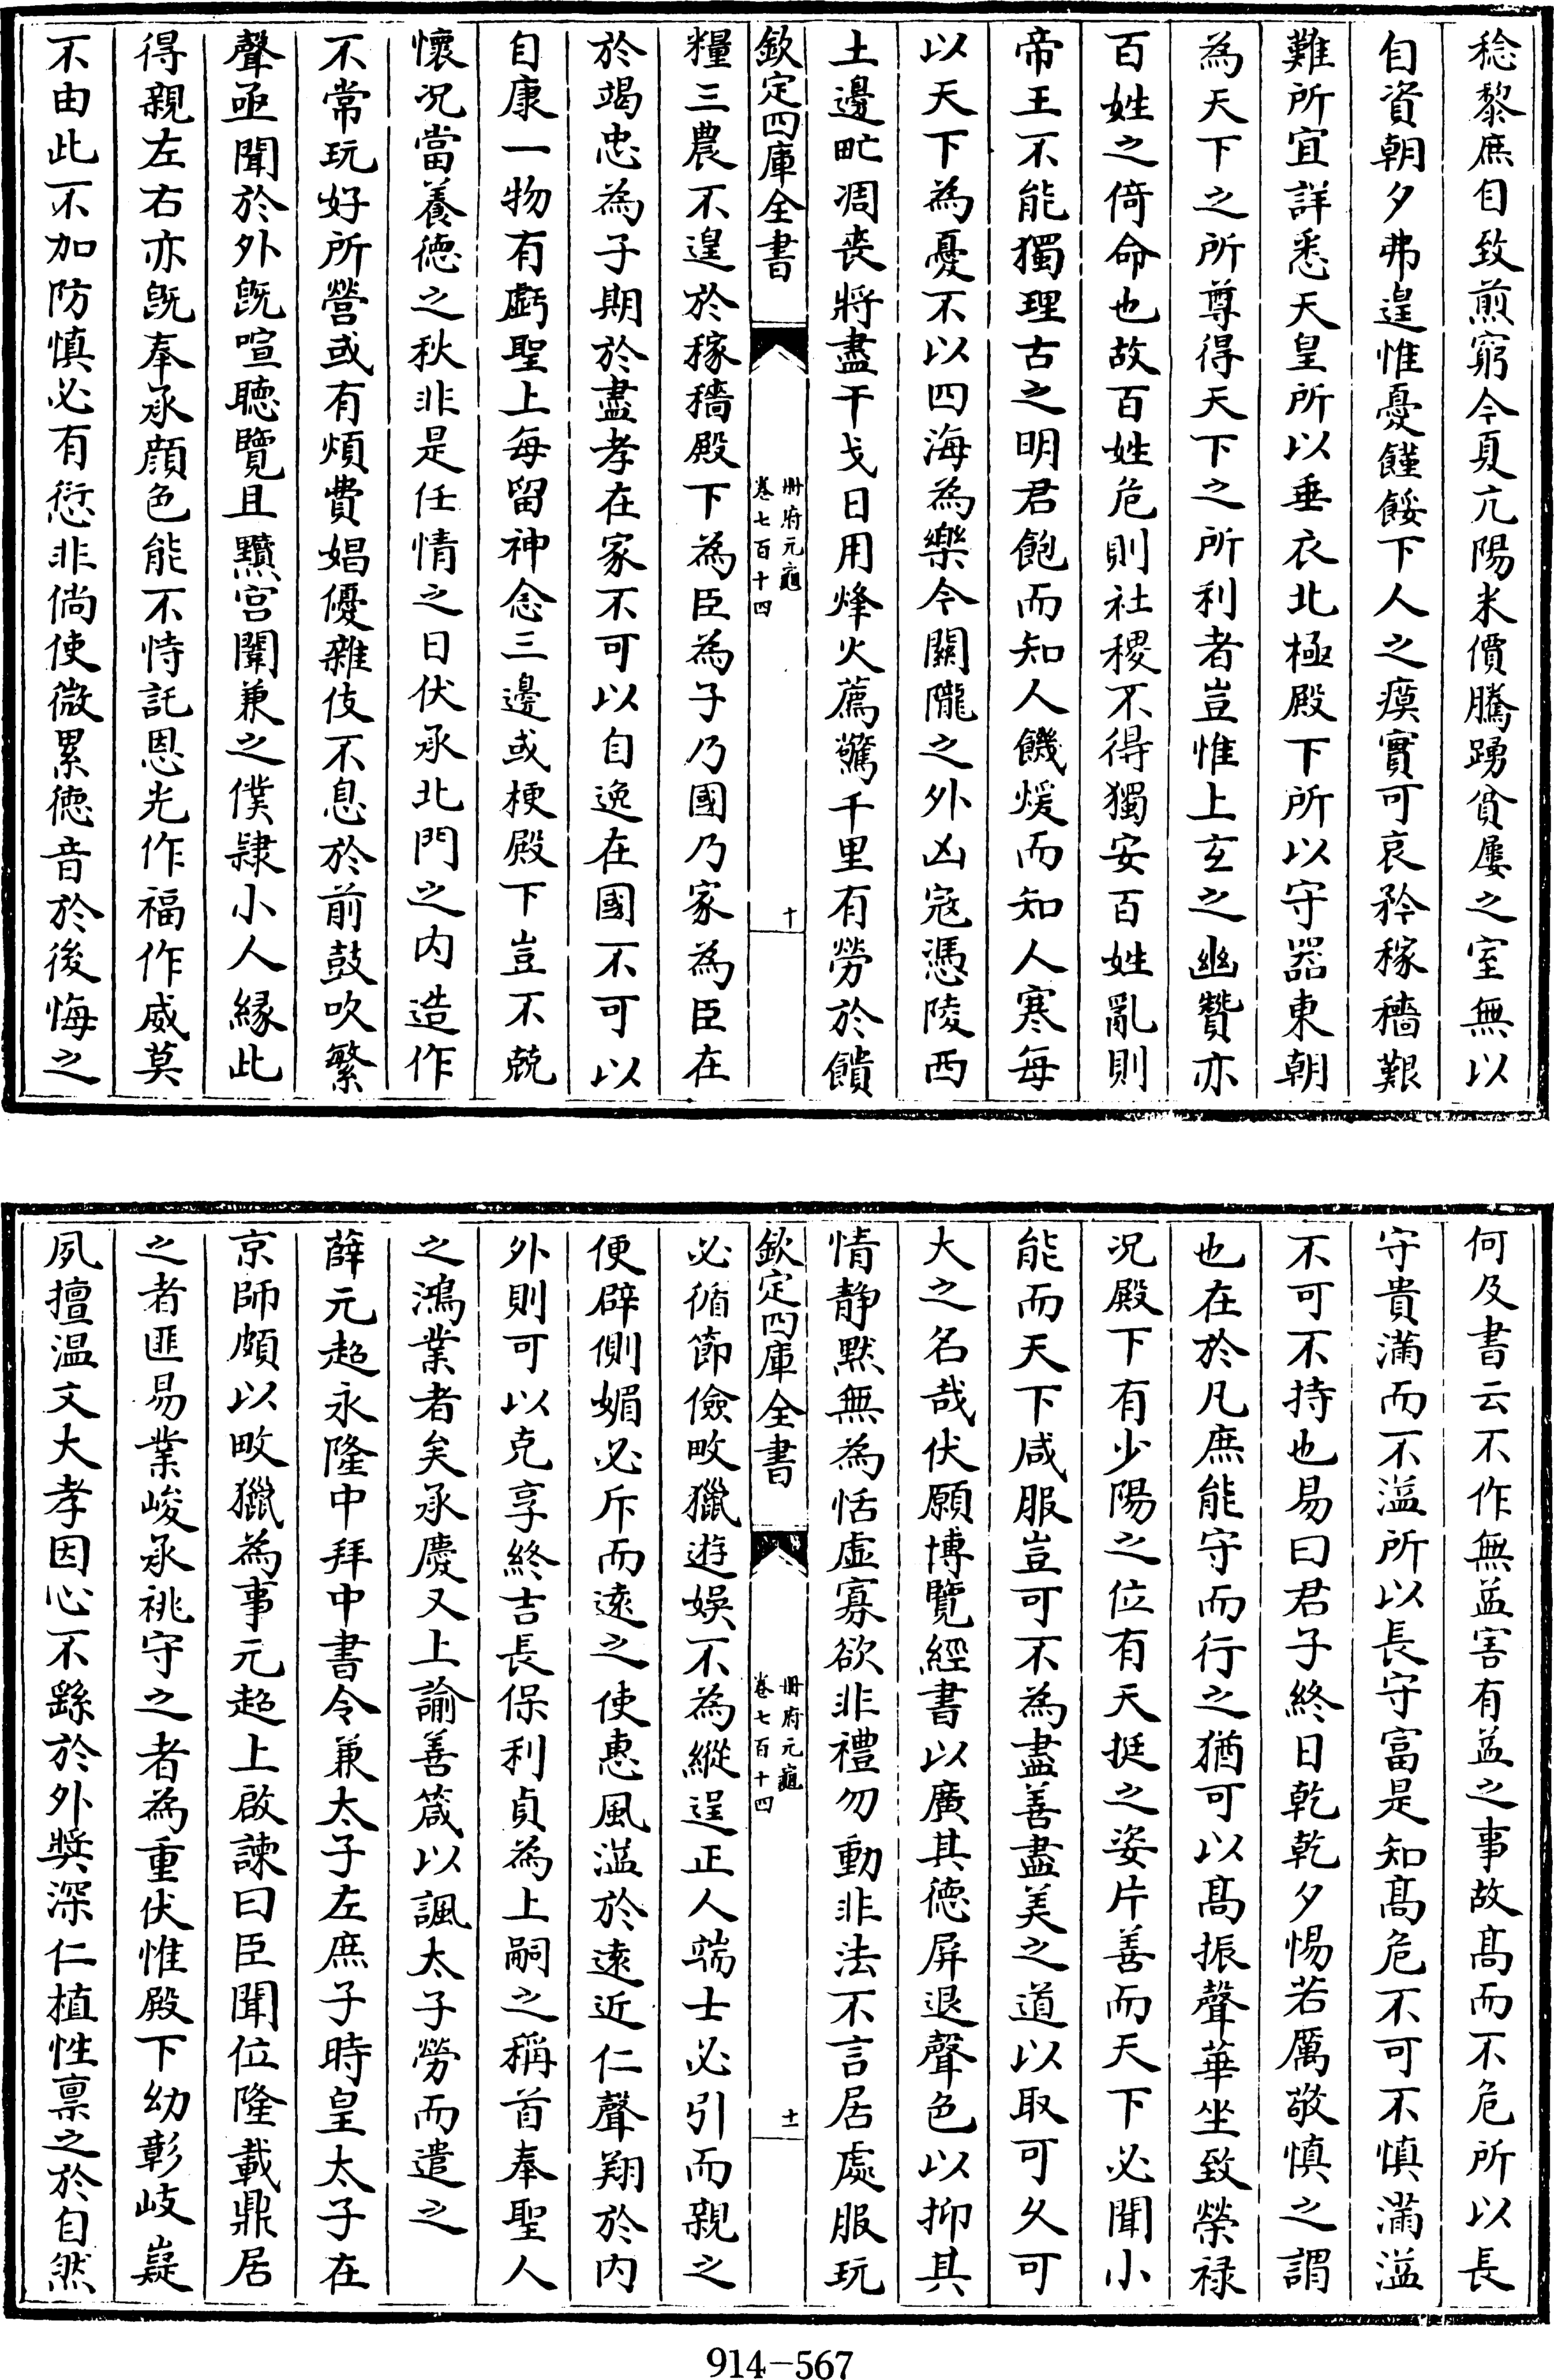 稔黎庶自致煎窮今夏亢陽米價騰踴貧屢之室無以
自資朝夕弗遑惟憂饉餒下人之瘼實可哀矜稼穡艱
難所宜詳悉天皇所以垂衣北極殿下所以守器東朝
為天下之所尊得天下之所利者豈惟上玄之幽贊亦
百姓之倚命也故百姓危則社稷不得獨安百姓亂則
帝王不能獨理古之明君飽而知人饑煖而知人寒每
以天下為憂不以四海為樂今關隴之外凶寇憑陵西
土邊甿凋丧將盡干戈日用烽火薦驚千里有勞於饋
欽定四庫全書
冊府元龜
卷七百十四
十
糧三農不遑於稼穡殿下為臣為子乃國乃家為臣在
於竭忠為子期於盡孝在家不可以自逸在國不可以
自康一物有虧聖上每留神念三邊或梗殿下豈不兢
懷况當養徳之秋非是任情之日伏承北門之内造作
不常玩好所營或有煩費娼優雜伎不息於前鼓吹繁
聲亟聞於外既喧聽覽且黷宫闈兼之僕隸小人緣此
得親左右亦既奉承顔色能不恃託恩光作福作威莫
不由此不加防慎必有愆非倘使微累徳音於後悔之
何及書云不作無益害有益之事故髙而不危所以長
守貴滿而不溢所以長守富是知髙危不可不慎滿溢
不可不持也易曰君子終日乾乾夕惕若厲敬慎之謂
也在於凡庶能守而行之猶可以髙振聲華坐致榮禄
况殿下有少陽之位有天挺之姿片善而天下必聞小
能而天下咸服豈可不為盡善盡美之道以取可乆可
大之名哉伏願博覽經書以廣其徳屏退聲色以抑其
情静黙無為恬虛寡欲非禮勿動非法不言居處服玩
欽定四庫全書
冊府元龜
卷七百十四
十一
必循節儉畋獵遊娱不為縱逞正人端士必引而親之
便辟側媚必斥而逺之使惠風溢於逺近仁聲翔於内
外則可以克享終吉長保利貞為上嗣之稱首奉聖人
之鴻業者矣承慶又上諭善箴以諷太子勞而遣之
薛元超永隆中拜中書令兼太子左庶子時皇太子在
京師頗以畋獵為事元超上啟諫曰臣聞位隆載鼎居
之者匪易業峻承祧守之者為重伏惟殿下幼彰岐嶷
夙擅温文大孝因心不繇於外奬深仁植性禀之於自然
914-567